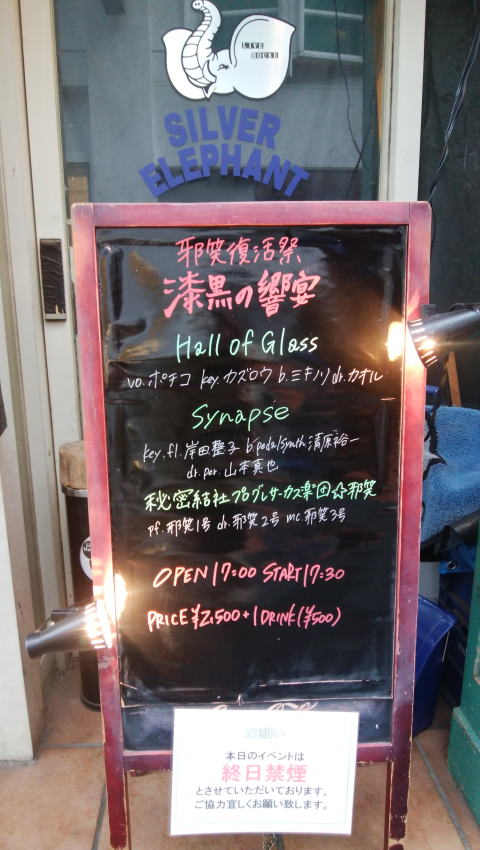 LIVE
HOUSE
SILVER
ELEPHANT
邪笑復活祭
漆黒の響宴
Hall of Glass
vo.ポチコ key.カズロウ b.ミキノリ dr.カオル
Synapse
key.fl.岸田整子 b.pedalsynth.清原裕一
dr.per.山本真也
秘密結社プログレサーカス楽団☆邪笑
pf.邪笑1号 dr.邪笑2号 mc.邪笑3号
OPEN17:00 START17:30
PRICE¥2,500+1DRINK(¥500)
お願い
本日のイベントは
終日禁煙
とさせていただいております。
ご協力宜しくお願い致します。